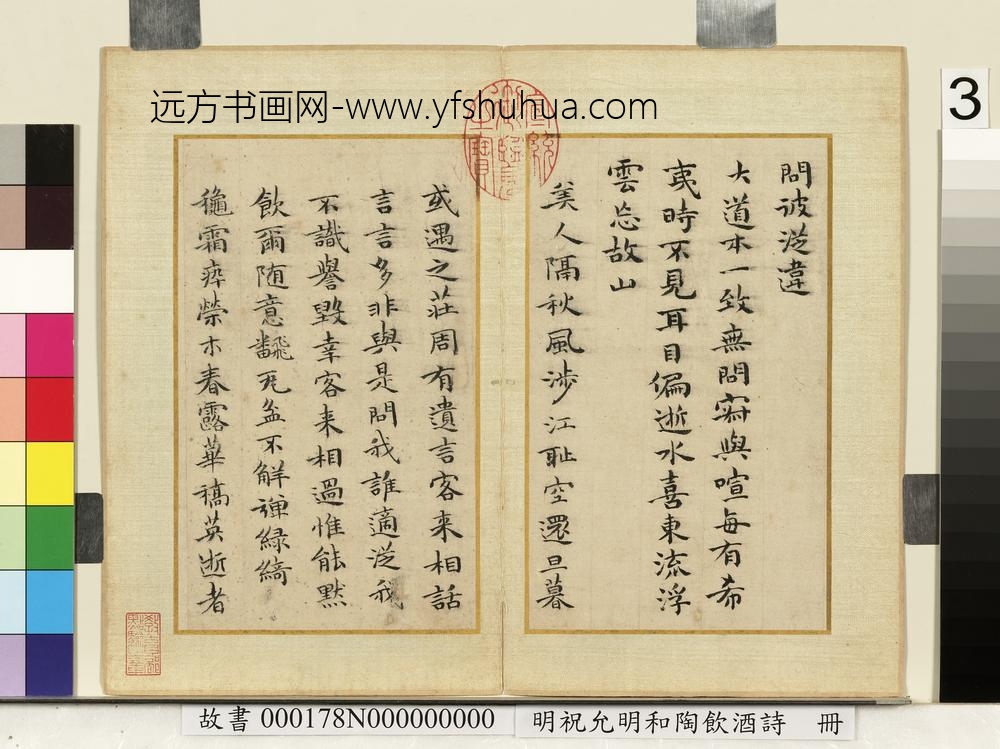 远方书画网-www.yfshuhua.com
3
問彼從違
大道本一致無問寂與喧每有希
夷時不見耳目偏逝水喜東流浮
雲忘故山
美人隔秋風涉江耻空還旦暮
或遇之莊周有遺言客来相話
言言多非與是問我誰適從我
不識譽毀幸客来相過惟能默
飲爾随意飜死盆不解彈緑綺
穐霜瘁榮木春露華槁英逝者
故書 000178N000000000
明祝允明和陶飲酒詩 冊